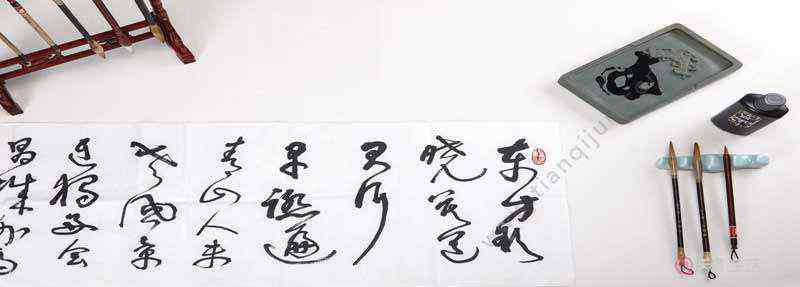 东方欲
晓莫道
君行
早踏遍
青山人未
老风景
独好会
昌城外高